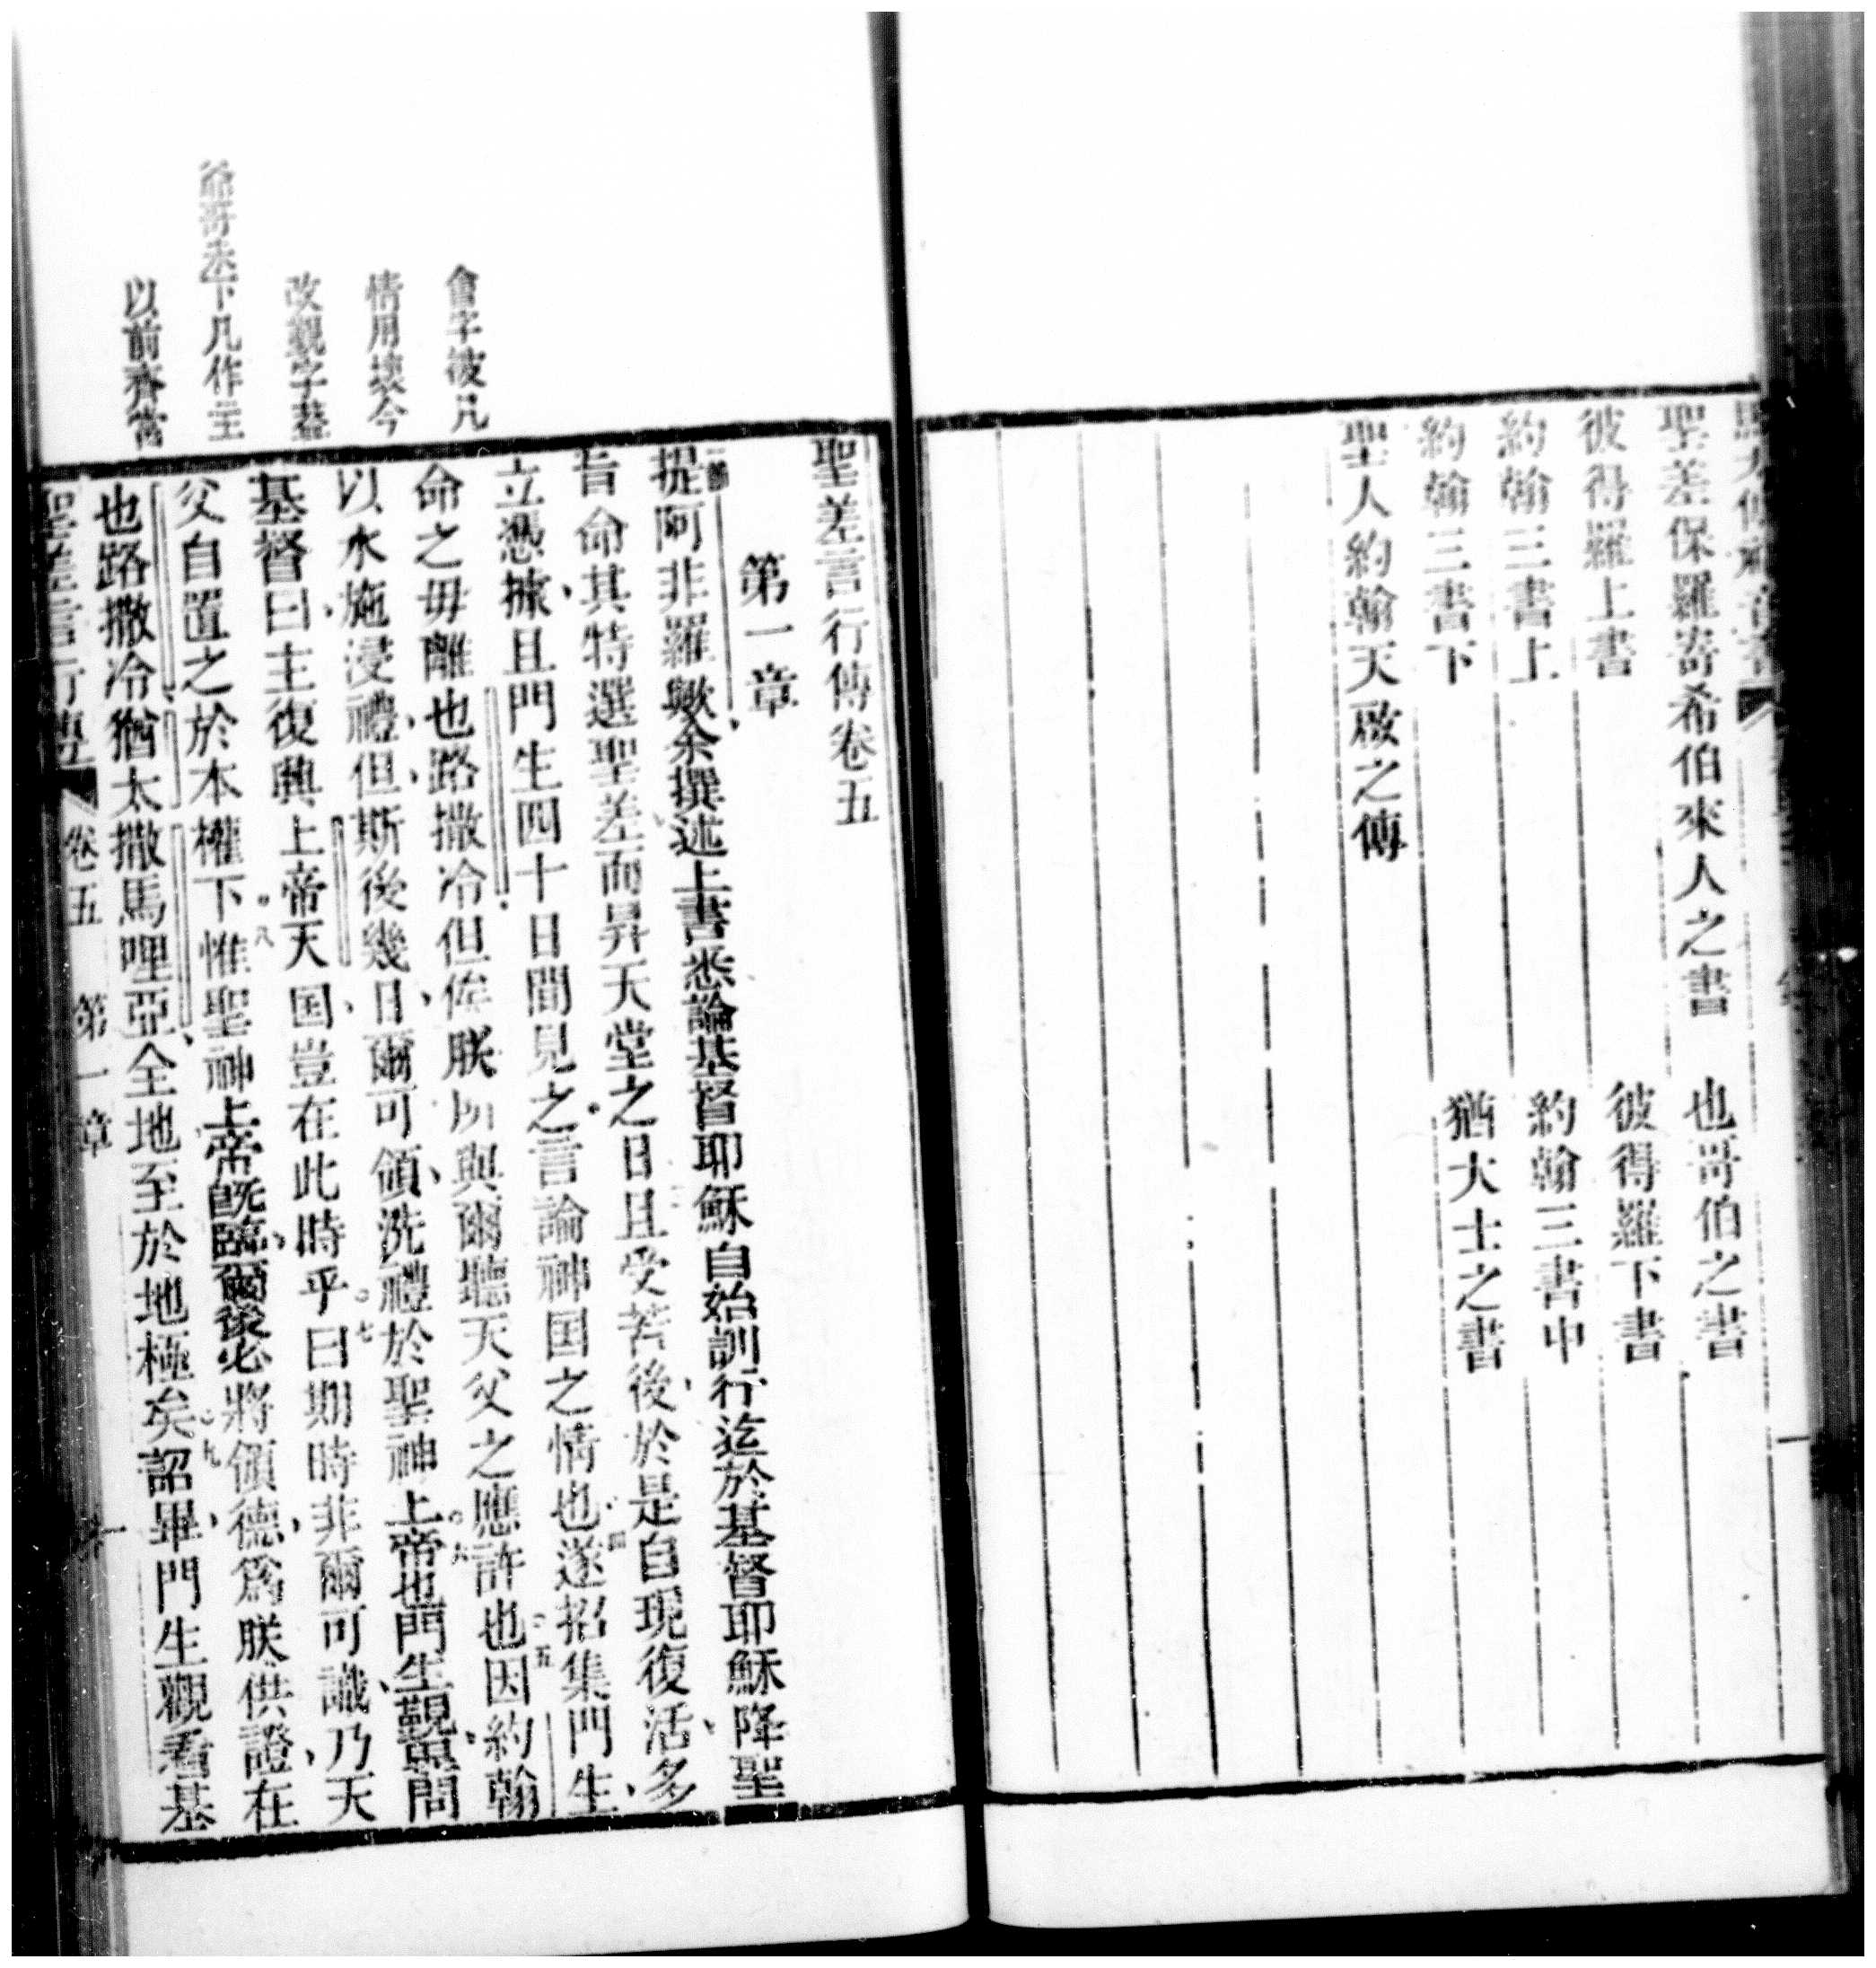 聖差保羅寄希伯來人之書　也哥伯之書
彼得羅上書　彼得羅下書
約翰三書上　約翰三書中
約翰三書下　猶大士之書
聖人約翰天啟之傳
聖差言行傳卷五
第一章
提阿非羅歟余撰述上書悉論基督耶穌自始訓行迄於基督耶穌降聖
旨命其特選聖差而昇天堂之日且受苦後於是自現復活多
立憑據且門生四十日間見之言論神国之情也四遂招集門生
命之毋離也路撒冷但俟朕所與爾聽天父之應許也五因約翰
以水施浸禮但斯後幾日爾可領洗禮於聖神上帝也六門生覲與問
基督曰主復興上帝天国豈在此時乎七曰期時非爾可識乃天
父自置之於本權下八惟聖神上帝旣臨爾後必將領德爲朕供證在
也路撒冷猶太撒馬哩亞全地至於地極矣九詔畢門生觀看基
會字彼凡
情用壞今
改觀字葢
下凡作主
以前齊當
聖差言行傳　卷五　第一章　一